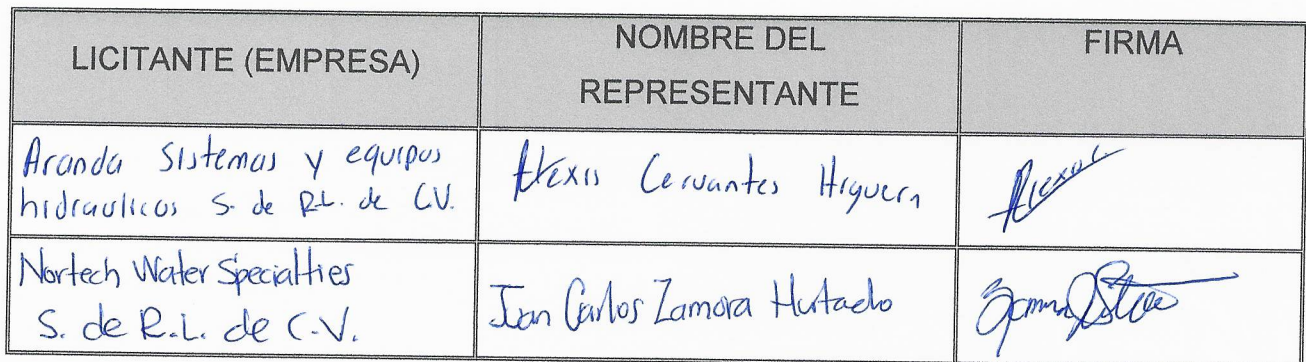 LICITANTE (EMPRESA)
NOMBRE DEL
REPRESENTANTE
FIRMA
Aranda Sistemas y equipos
hidraulicos S. de R.L. de C.V.
Alexis Cervantes Higuera
Nortech Water Specialties
S. de R.L. de C.V.
Juan Carlos Zamora Hutado